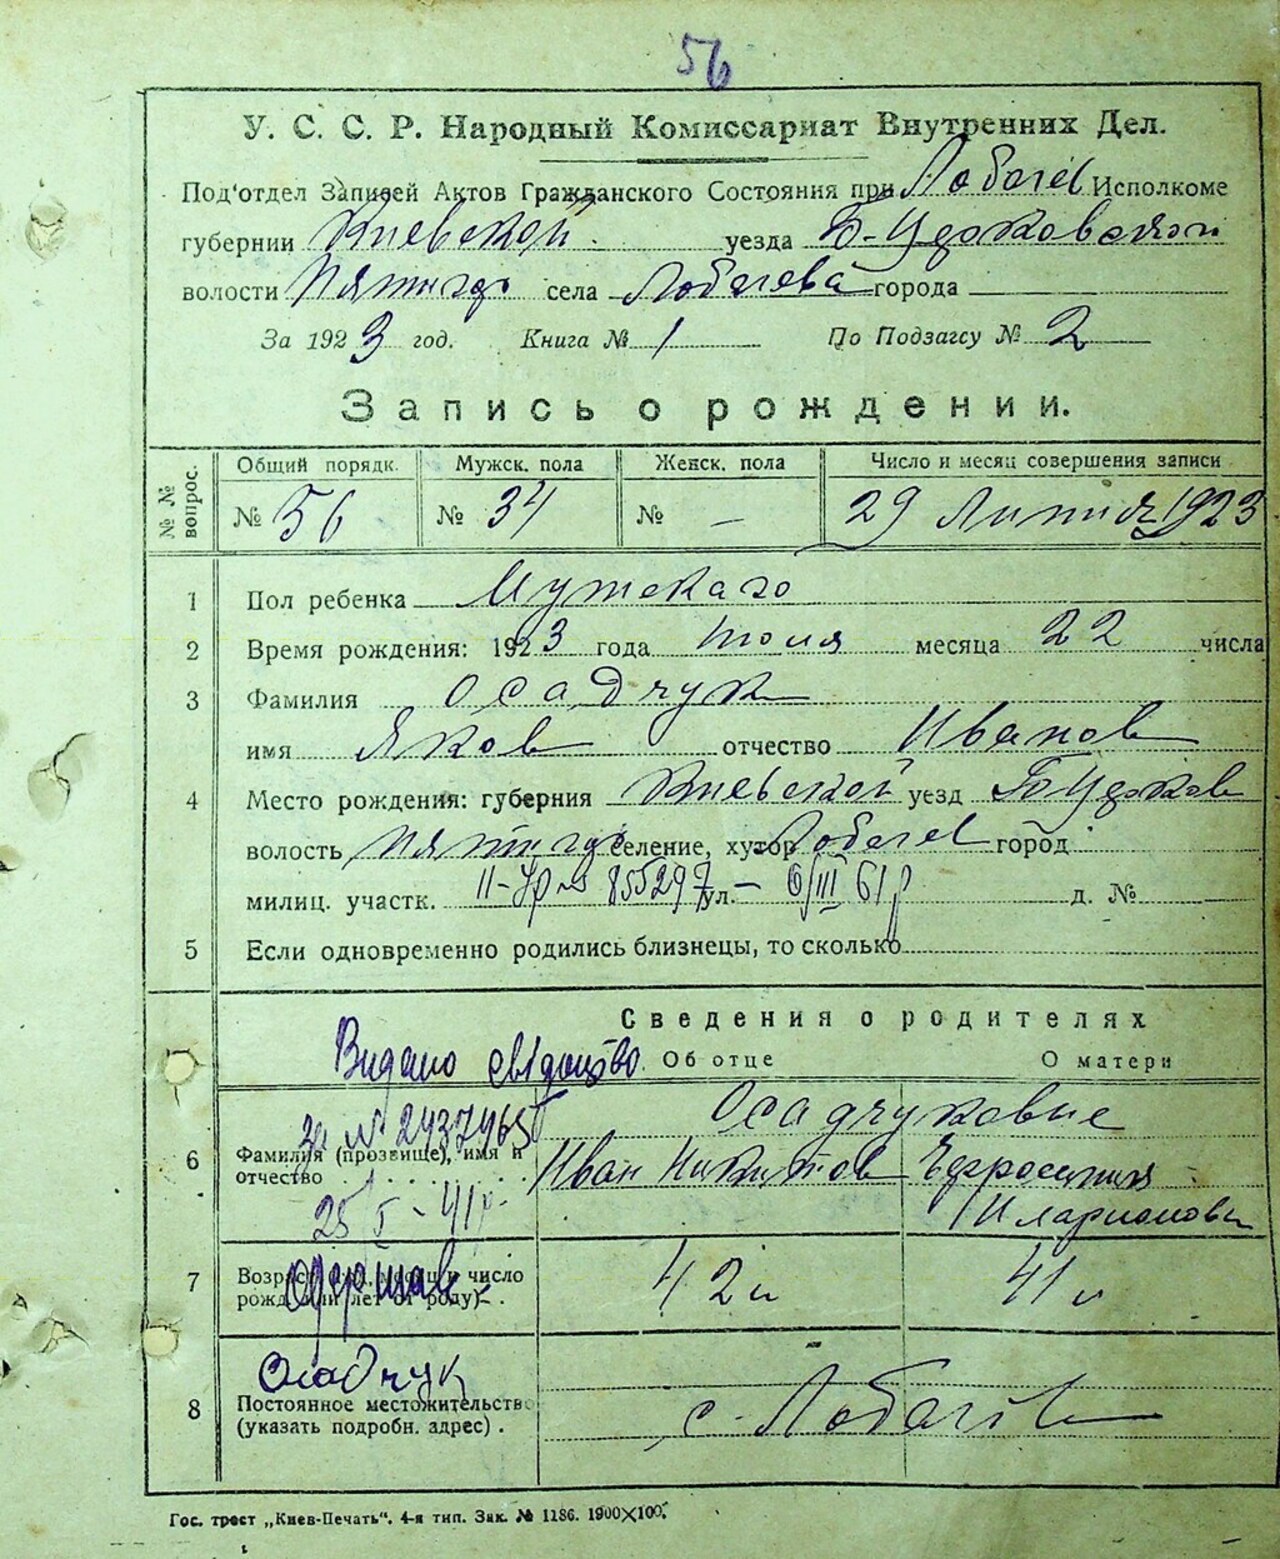 56
У. С. С. Р. Народный Комиссариат Внутренних Дел.
Под'отдел Записей Актов Гражданского Состояния при Лобачев Исполкоме
губернии Киевской уезда Б-Церковской
волости Пятигор села Лобачева города
За 1923 год. Книга № 1 По Подзагсу № 2
Запись о рождении.
№№ вопрос. Общий порядк. Мужск. пола Женск. пола Число и месяц совершения записи
№ 56 № 34 № - 29 Липня 1923
1 Пол ребенка Мужскаго
2 Время рождения: 1923 года июля месяца 22 числа
3 Фамилия Осадчук
имя Яков отчество Иванов
4 Место рождения: губерния Киевской уезд Б Церков
волость Пятигор селение, хутор Лобачев город
милиц. участк. II-УР № 855297 ул. - 6/III 61 р д. №
5 Если одновременно родились близнецы, то сколько
Сведения о родителях
Видано свідоцтво Об отце О матери
за № 2437965 Осадчуковые
6 Фамилия (прозвище), имя и отчество Иван Никитов Ефросиния
25 I - 41 р. Иларионовн
7 Возраст (год, месяц и число рожд. или лет от роду) 42 41
одержав
Осадчук
8 Постоянное местожительство (указать подробн. адрес) с. Лобачев
Гос. трест „Киев-Печать“. 4-я тип. Зак. № 1186. 1900×100.